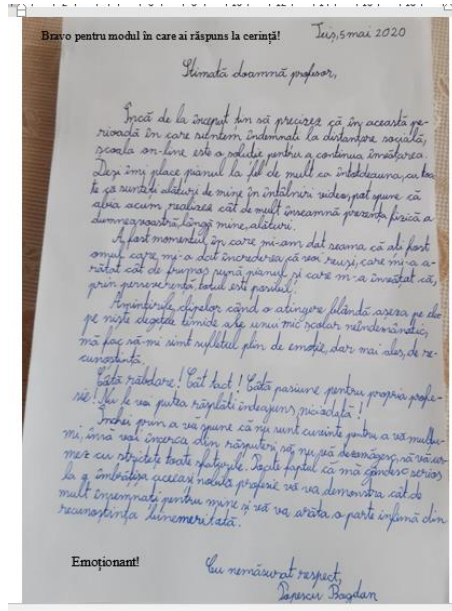 Bravo pentru modul în care ai răspuns la cerință!
Teiș, 5 mai 2020
Stimată doamnă profesor,
Încă de la început țin să precizez că în această pe-
rioadă în care suntem îndemnați la distanțare socială,
școala on-line este o soluție pentru a continua învățarea.
Deși îmi place pianul la fel de mult ca întotdeauna, cu toa-
te că sunteți alături de mine în întâlniri video, pot spune că
abia acum realizez cât de mult înseamnă prezența fizică a
dumneavoastră, lângă mine, alături.
A fost momentul în care mi-am dat seama că ați fost
omul care mi-a dat încrederea că voi reuși, care mi-a a-
rătat cât de frumos sună pianul și care m-a învățat că,
prin perseverență, totul este posibil.
Amintirile clipelor când o atingere blândă așeza pe cla
pe niște degețele timide ale unui mic școlar neîndemânatic,
mă fac să-mi simt sufletul plin de emoție, dar mai ales, de re-
cunoștință.
Câtă răbdare! Cât tact! Câtă pasiune pentru propria profe-
sie! Nu le voi putea răsplăti îndeajuns, niciodată!
Închei prin a vă spune că nu sunt cuvinte pentru a vă mulțu-
mi, însă voi încerca din răsputeri să nu vă dezamăgesc, să vă ur-
mez cu strictețe toate sfaturile. Poate faptul că mă gândesc serios
la a îmbrățișa aceeași nobilă profesie vă va demonstra cât de
mult însemnați pentru mine și vă va arăta o parte infimă din
recunoștința binemeritată.
Emoționant!
Cu nemăsurat respect,
Popescu Bogdan